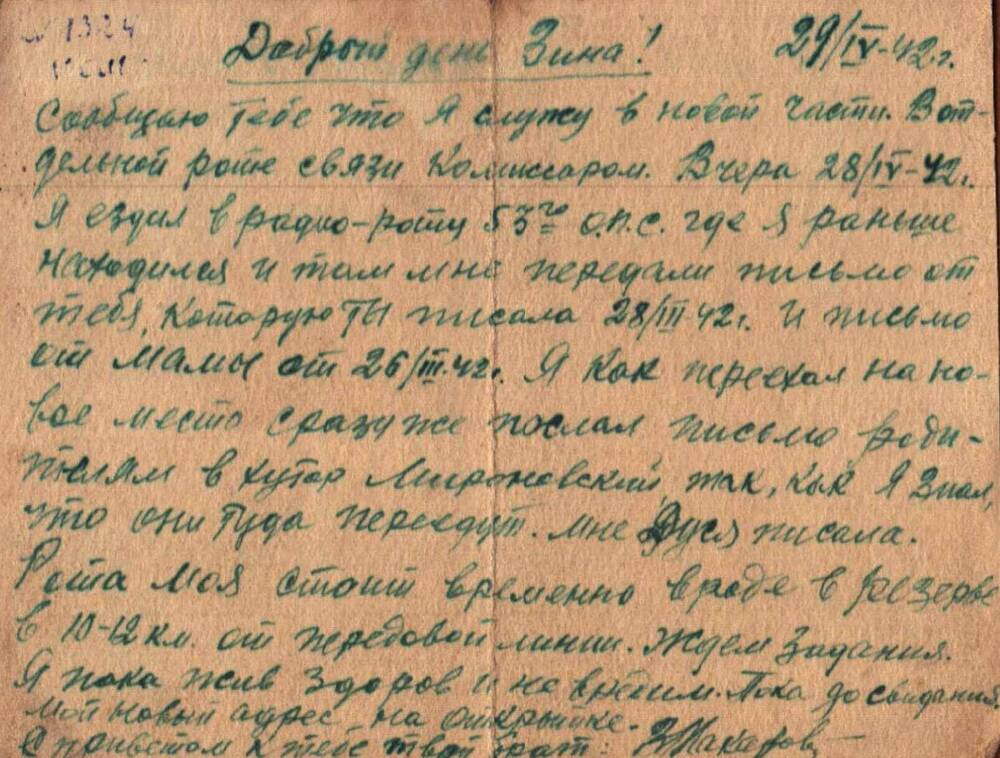 1324
Добрый день Зина! 29/IV-42г.
Сообщаю тебе что я служу в новой части. В от-
дельной роте связи Комиссаром. Вчера 28/IV-42г.
Я ездил в радио-роту 53го О.П.С. где я раньше
находился и там мне передали письмо от
тебя, которую ты писала 28/III 42г. И письмо
от мамы от 26/III.42г. Я как переехал на но-
вое место сразу же послал письмо роди-
телям в хутор Мироновский, так, как я знал,
что они туда переедут. мне Дуся писала.
Рота моя стоит временно вроде в резерве
в 10-12 км. от передовой линии. Ждем задания.
Я пока жив здоров и не вредим. Пока до свидания,
мой новый адрес на открытке.
С приветом к тебе твой брат: Макаров